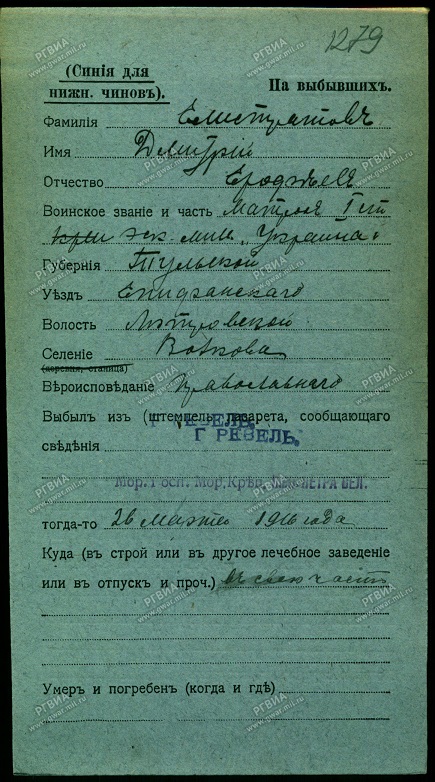 1279
(Синія для
нижн. чиновъ).
На выбывшихъ.
Фамилія Елистратовъ
Имя Дмитрій
Отчество
Воинское званіе и часть Матросъ I ст
эк. мин. „Украина“
Губернія Тульской
Уѣздъ Епифанскаго
Волость
Селеніе Волкова
(деревня, станица)
Вѣроисповѣданіе Православнаго
Выбылъ изъ (штемпель лазарета, сообщающаго
Г РЕВЕЛЬ.
свѣдѣнія
Мор. Госп. Мор. Крѣп. ИМП. ПЕТРА ВЕЛ.
тогда-то 26 Марта 1916 года
Куда (въ строй или въ другое лечебное заведеніе
или въ отпускъ и проч.) въ свою часть
Умеръ и погребенъ (когда и гдѣ)
РГВИА
www.gwar.mil.ru